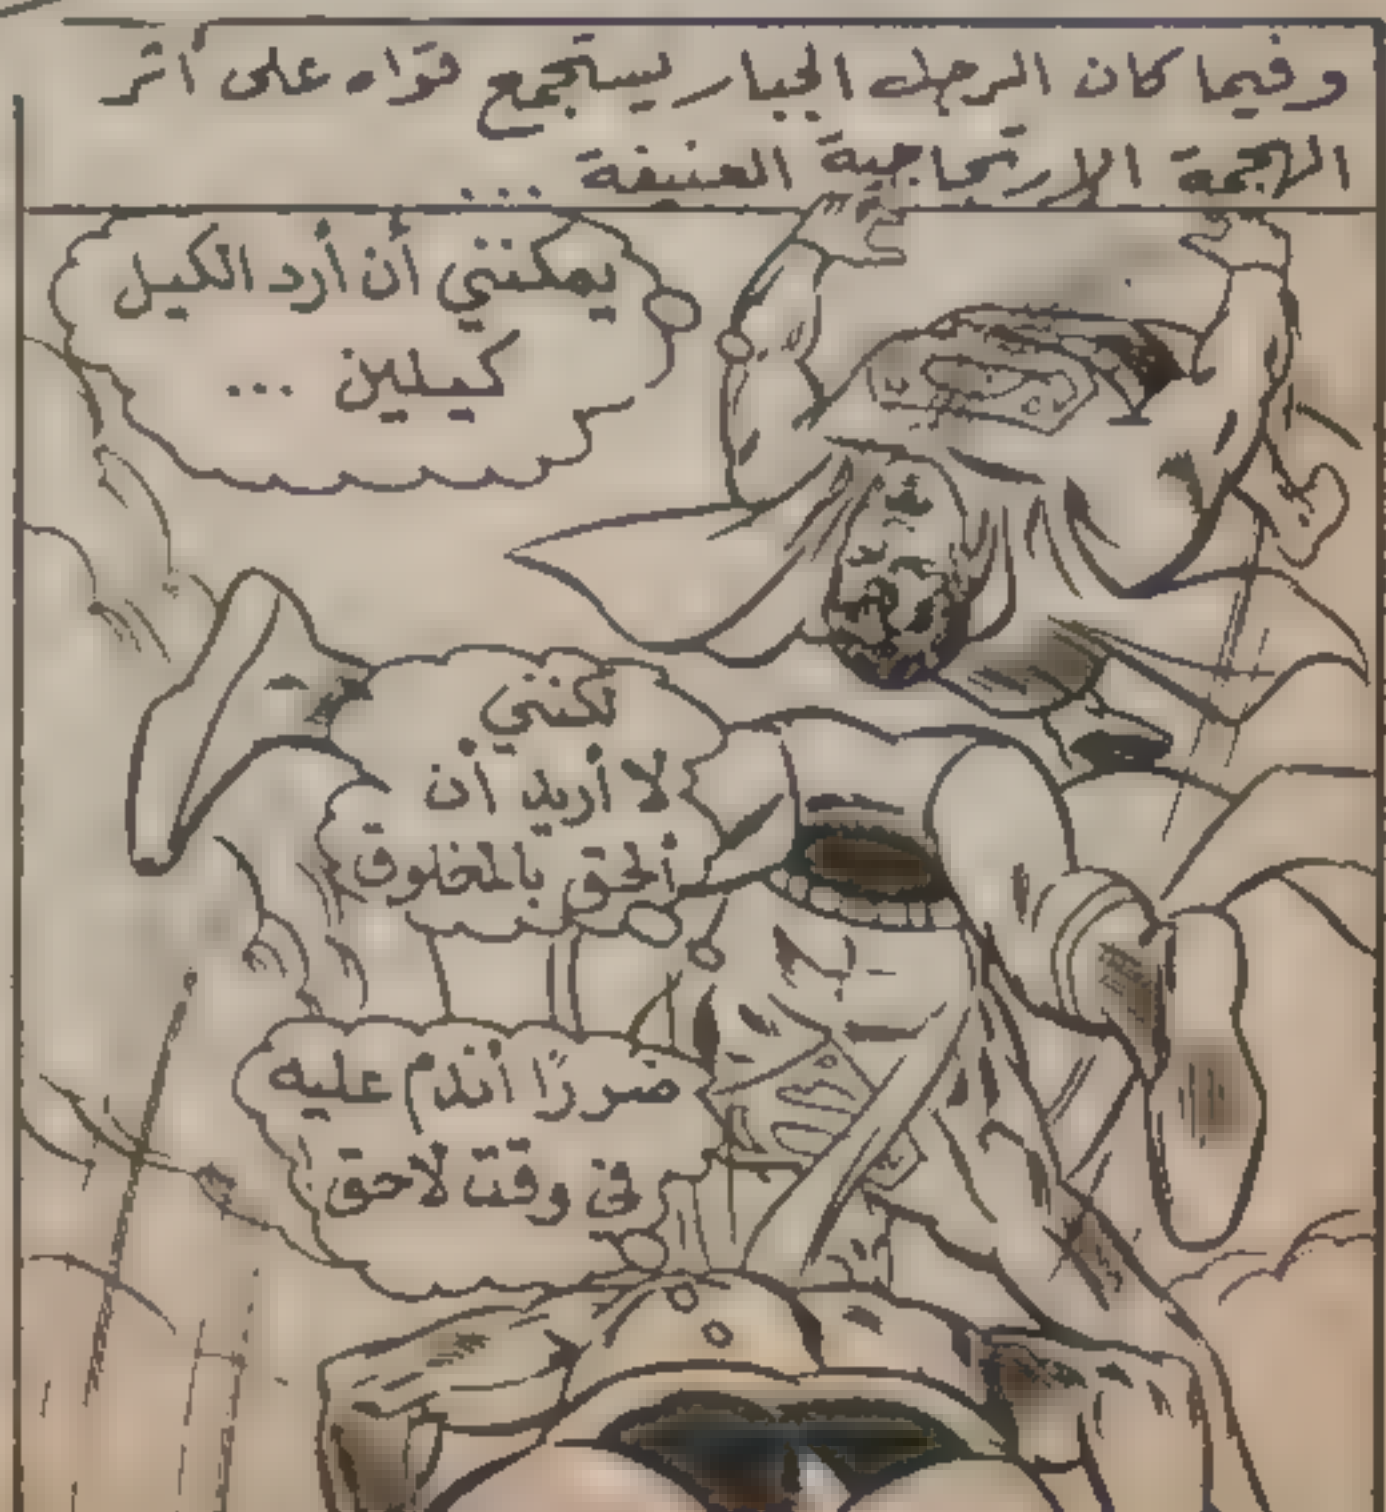 وفيما كان الرجل الجبار يستجمع قواه على أثر
الهجمة الارتجاجية العنيفة ...
يمكنني أن أرد الكيل
كيلين ...
لكنني
لا أريد أن
ألحق بالمخلوق
ضررًا أندم عليه
في وقت لاحق